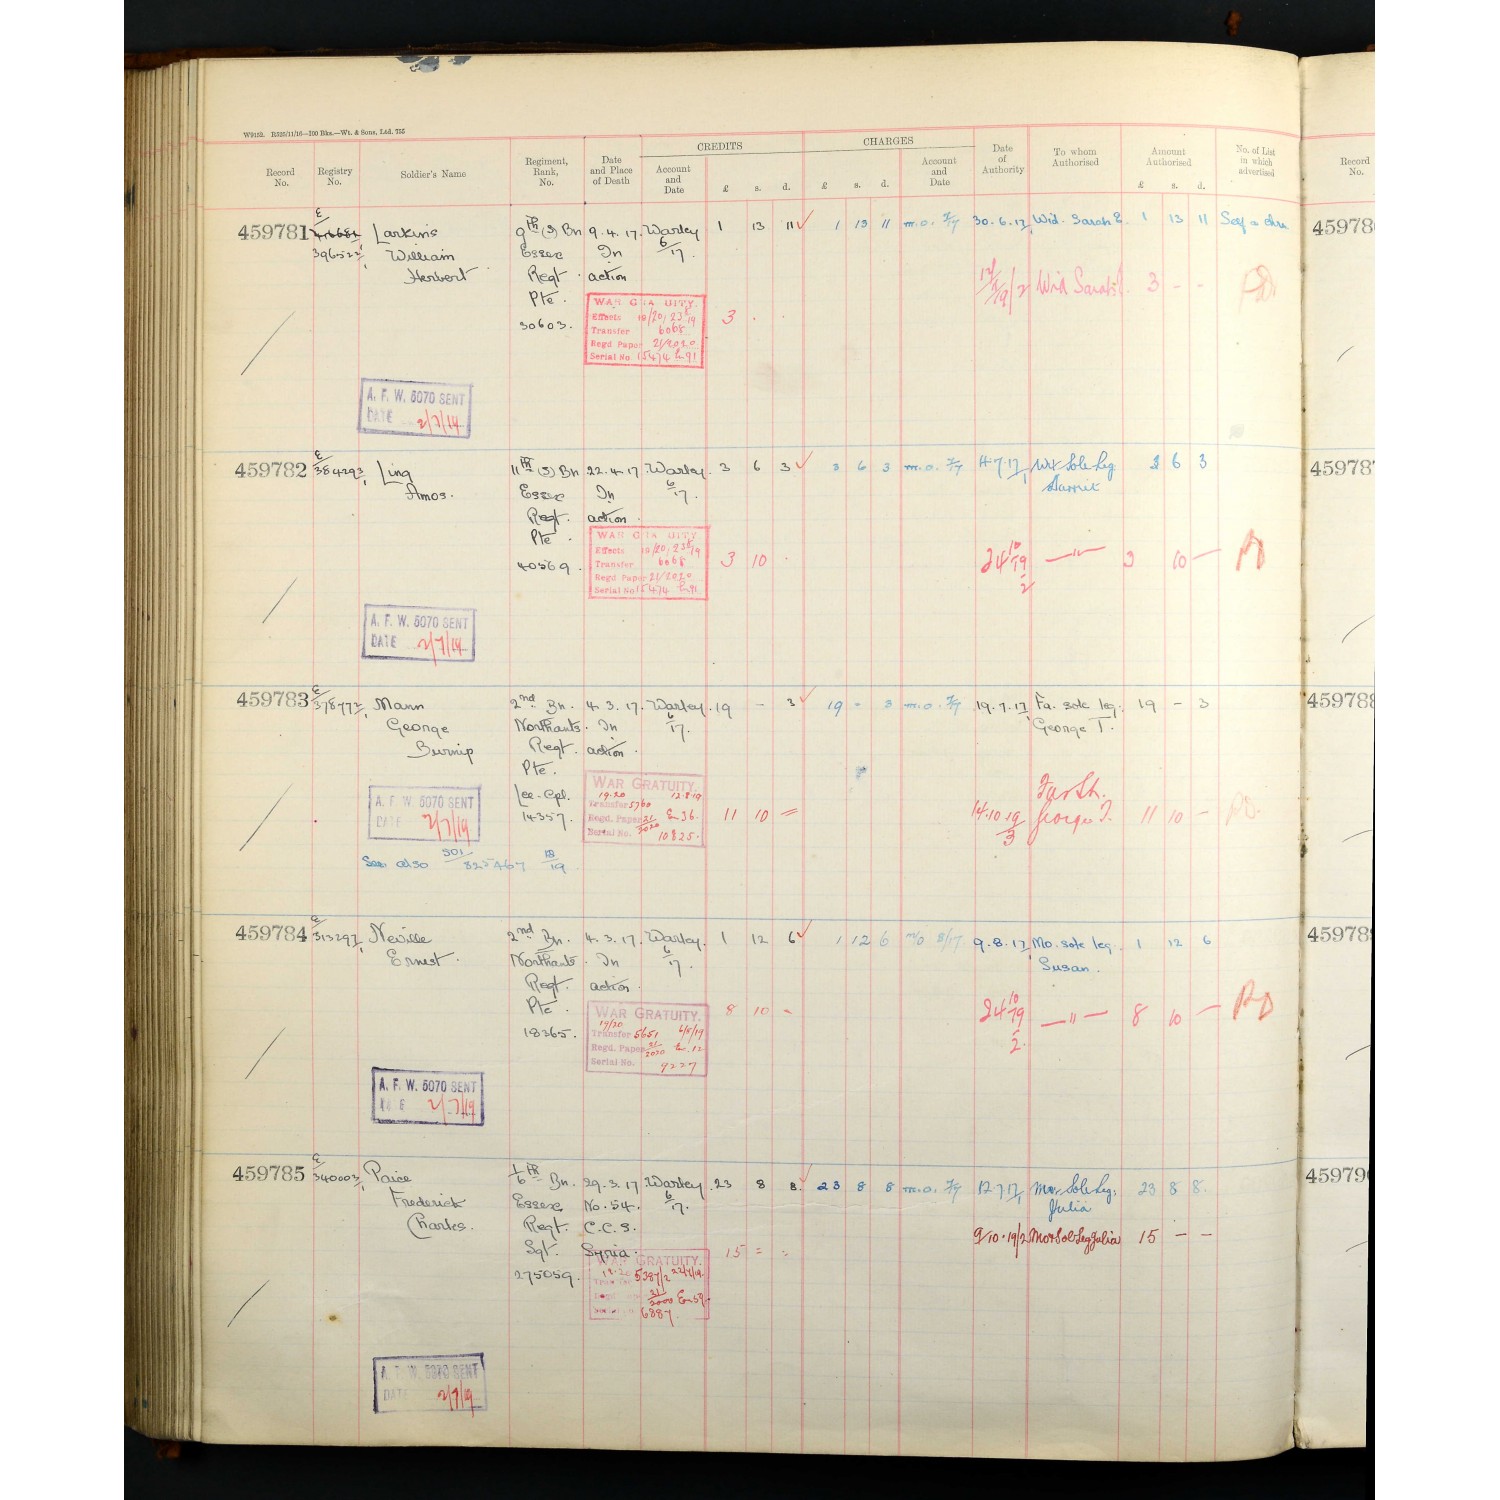 W9152. R525/11/16—200 Bks.—Wt. & Sons, Ltd. 755
CREDITS CHARGES
Record No. Registry No. Soldier's Name Regiment, Rank, No. Date and Place of Death Account and Date £ s. d. £ s. d. Account and Date Date of Authority To whom Authorised Amount Authorised £ s. d. No. of List in which advertised Record No.
459781 E/ Larkins 9th (S) Bn 9.4.17 Warley 1 13 11 1 13 11 m.o. 7/7 30.6.17 Wid. Sarah E. 1 13 11 45978
396522/1 William Essex In 6/17.
Herbert Regt action
Pte.
30603.
WAR GRATUITY.
Effects 19/20, 23
Transfer 6068
Regd Paper 21/2020
Serial No. 15474 L91
3 . .
Wid Sarah E. 3 - -
A. F. W. 5070 SENT
DATE 2/7/19
459782 E/ 384293/1 Ling 11th (S) Bn 22.4.17 Warley 3 6 3 3 6 3 m.o. 7/7 4.7.17/1 Wid Sole Leg 3 6 3 45978
Amos. Essex In 6/17. Harriet
Regt. action
Pte.
40369.
WAR GRATUITY
Effects 19/20, 23
Transfer 6068
Regd Paper 21/2020
Serial No 15474 L91
3 10 .
24 10/19/2 —"— 3 10 —
A. F. W. 5070 SENT
DATE 2/7/19
459783 E/ 378772/1 Mann 2nd Bn. 4.3.17. Warley. 19 - 3 19 - 3 m.o. 7/7 19.7.17/1 Fa. sole leg. 19 - 3 45978
George Northants. In 6/17. George T.
Burnip Regt. action
Pte.
Lce-Cpl.
14357.
WAR GRATUITY.
19.20 12.8.19
Transfer 5760
Regd. Paper 21/2020 L 36.
Serial No. 10825.
11 10 =
14.10.19/3 George T. 11 10 -
A. F. W. 5070 SENT
DATE 2/7/19
See also 501/825467 19
459784 E/ 313297/1 Neville 2nd Bn. 4.3.17. Warley. 1 12 6 1 12 6 m/o 8/17 9.8.17/1 Mo. sole leg. 1 12 6 45978
Ernest. Northants. In 6/17. Susan.
Regt. action
Pte.
18365.
WAR GRATUITY.
19/20
Transfer 5651
Regd. Paper 21/2020 L. 12
Serial No. 9227
8 10 -
24 10/19/2. —"— 8 10 —
A. F. W. 5070 SENT
2/7/19
459785 E/ 340003/1 Paice 1/6th Bn. 29.3.17 Warley. 23 8 8. 23 8 8 m.o. 7/7 12.7.17/1 Mo. Sole Leg. 23 8 8. 45979
Frederick Essex No. 54. 6/17. Julia
Charles. Regt. C.C.S.
Sgt. Syria.
275059.
WAR GRATUITY.
5387/2
21/2020
6887.
15 = =
9/10.19/2 Mor Sole Leg Julia 15 - -
A. F. W. 5070 SENT
DATE 2/7/19